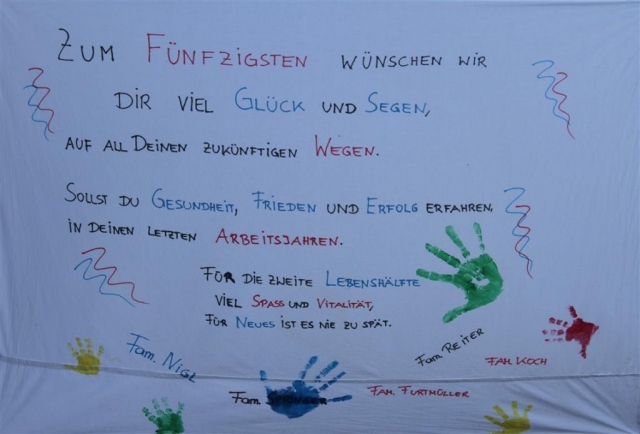 Zum Fünfzigsten wünschen wir
dir viel Glück und Segen,
auf all Deinen zukünftigen Wegen.
Sollst du Gesundheit, Frieden und Erfolg erfahren,
in deinen letzten Arbeitsjahren.
Für die zweite Lebenshälfte
viel Spass und Vitalität,
für Neues ist es nie zu spät.
Fam. Nigl
Fam. Reiter
Fam. Koch
Fam.
Fam. Furtmüller